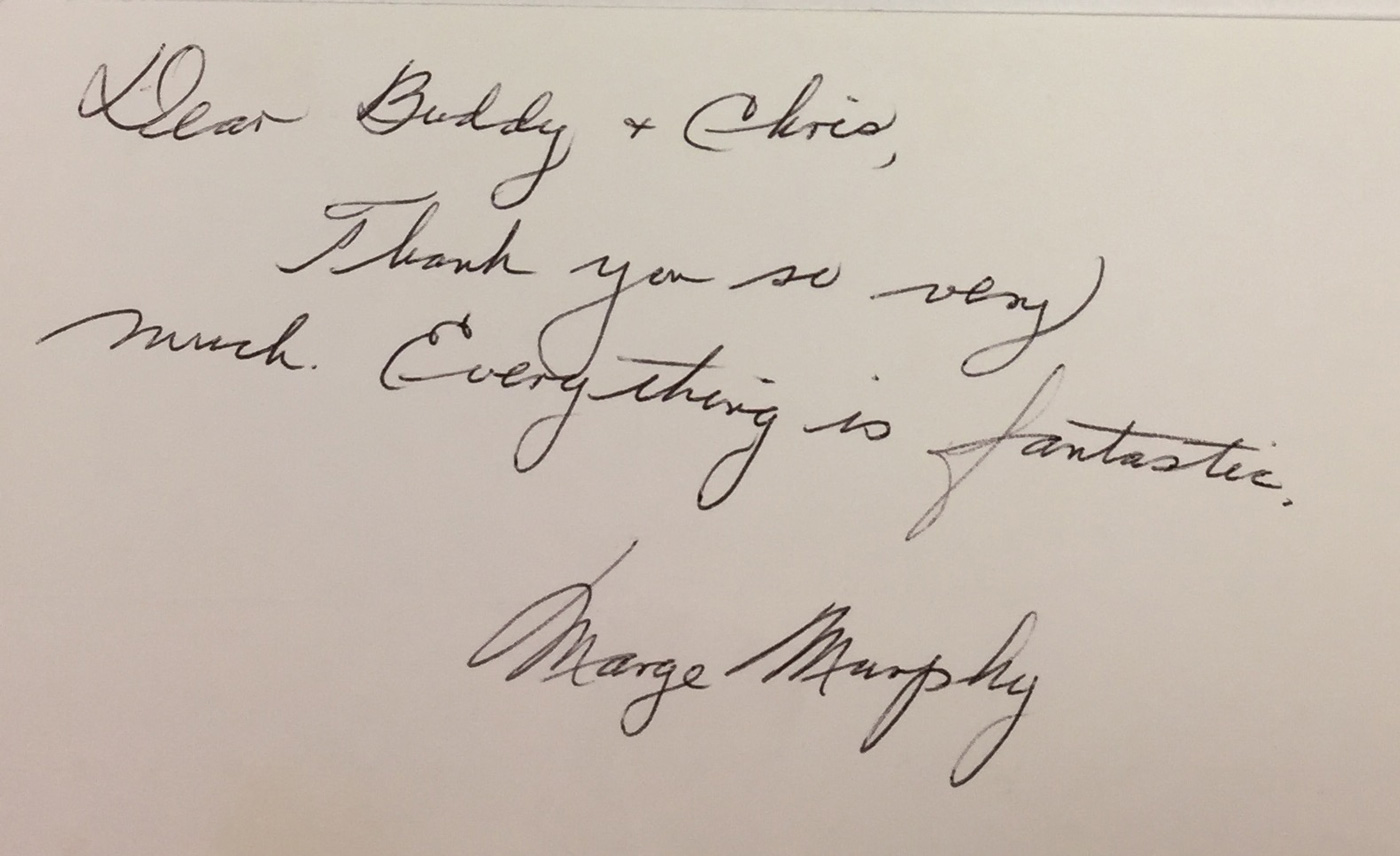 Dear Buddy + Chris,
Thank you so very
much. Everything is fantastic.
Marge Murphy